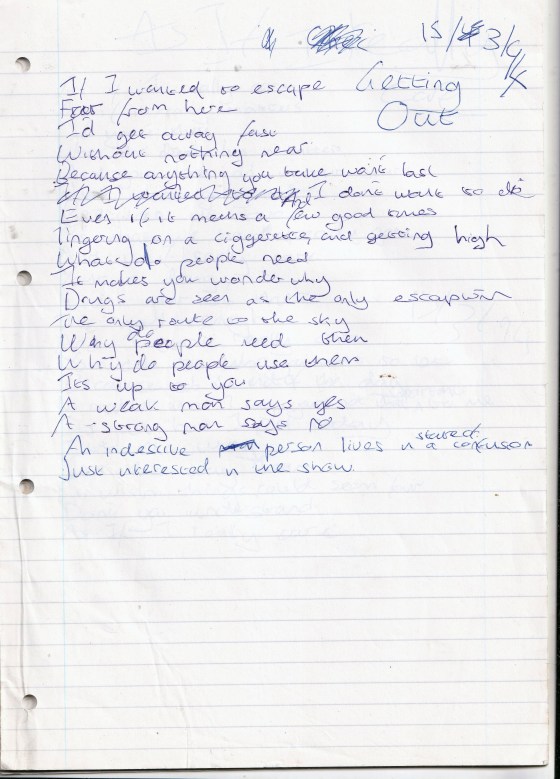 15/
Getting
Out
If I wanted to escape
from here
I'd get away fast
Without nothing near
Because anything you take wont last
And I dont want to die
Even if it means a few good times
lingering on a ciggerette and getting high
What do people need
It makes you wonder why
Drugs are seen as the only escapism
The only route to the sky
Why do people need them
Why do people use them
Its up to you
A weak man says yes
A strong man says no
An indesicive person lives in a state of confusion
Just interested in the show